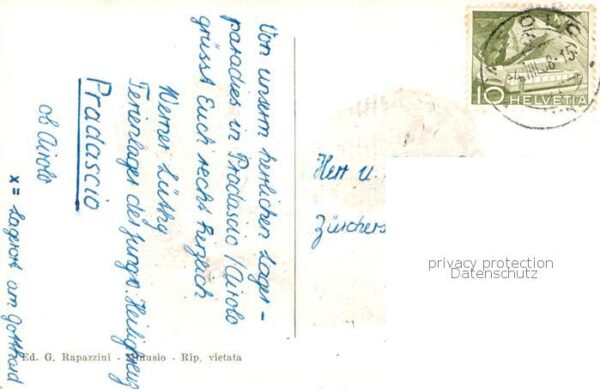 Von unserm herrlichen Lager-
paradies in Pradascio / Airolo
grüsst Euch recht herzlich
Werner Lüthy
Ferienlager der Jungw. Heiligkreuz
Pradascio
ob Airolo
x = Lagerort am Gotthard
Herr u.
Zürchers
10 HELVETIA
privacy protection
Datenschutz
Ed. G. Rapazzini - Minusio - Rip. vietata